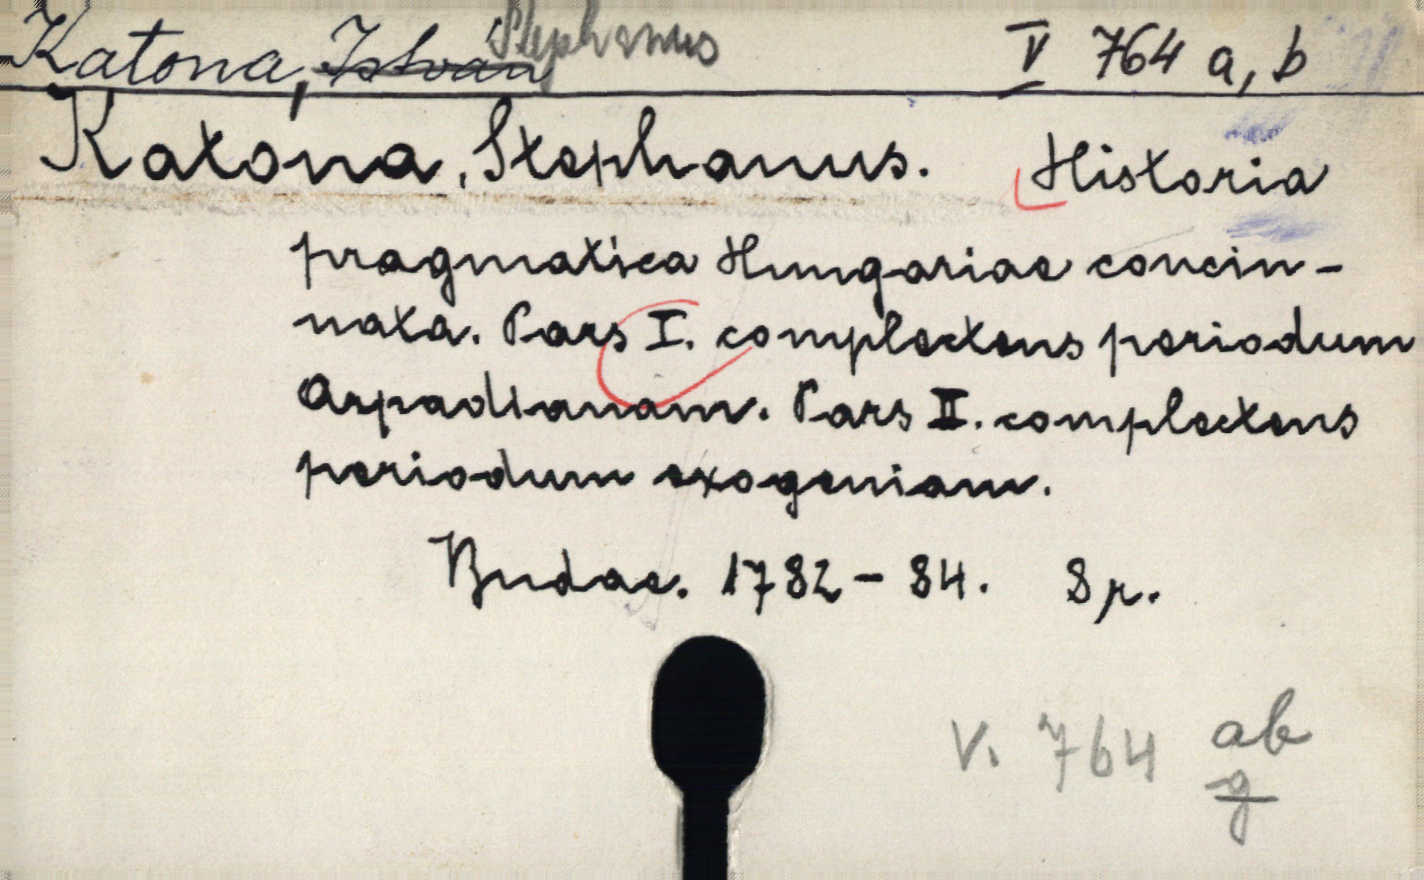 Katona, István Stephanus V 764 a, b
Katona, Stephanus. Historia
pragmatica Hungariae concin-
nata. Pars I. complectens periodum
Arpadianam. Pars II. complectens
periodum exogeniam.
Budae. 1782-84. 8 r.
V. 764 ab
g